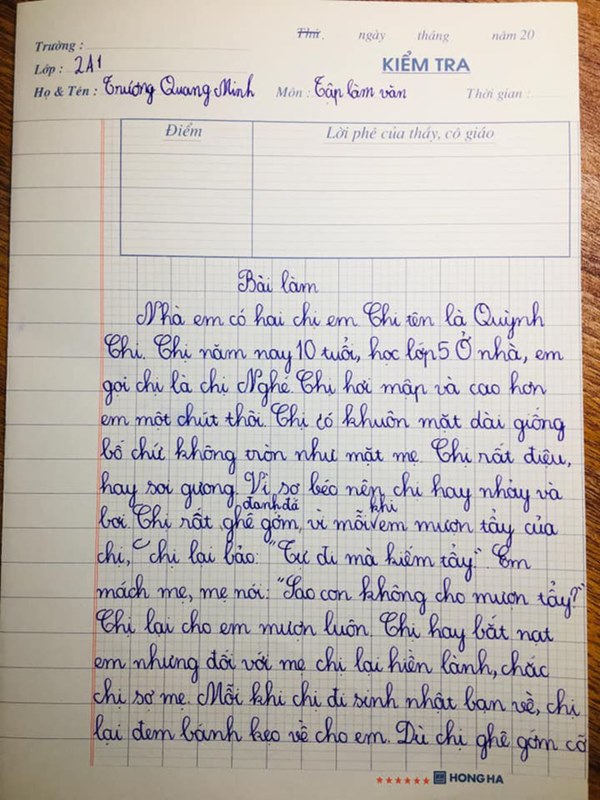 Thứ, ngày tháng năm 20
Trường :
Lớp : 2A1
KIỂM TRA
Họ & Tên : Trương Quang Minh Môn : Tập làm văn Thời gian :
Điểm Lời phê của thầy, cô giáo
Bài làm
Nhà em có hai chị em. Chị tên là Quỳnh
Chi. Chị năm nay 10 tuổi, học lớp 5 Ở nhà, em
gọi chị là chị Nghé. Chị hơi mập và cao hơn
em một chút thôi. Chị có khuôn mặt dài giống
bố chứ không tròn như mặt mẹ. Chị rất điệu,
hay soi gương. Vì sợ béo nên chị hay nhảy và
bơi. Chị rất đanh đá ghê gớm, vì mỗi khi em mượn tẩy của
chị, chị lại bảo: "Tự đi mà kiếm tẩy". Em
mách mẹ, mẹ nói: "Sao con không cho mượn tẩy?"
Chị lại cho em mượn luôn. Chị hay bắt nạt
em nhưng đối với mẹ chị lại hiền lành, chắc
chị sợ mẹ. Mỗi khi chị đi sinh nhật bạn về, chị
lại đem bánh kẹo về cho em. Dù chị ghê gớm cỡ
HONG HA